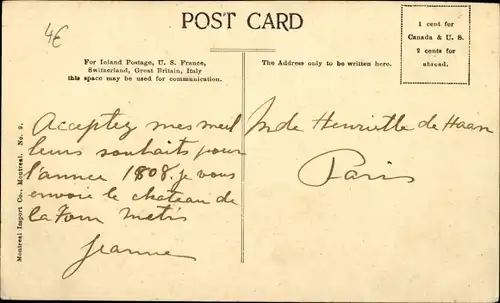 4€
POST CARD
1 cent for
Canada & U. S.
2 cents for
abroad.
For Inland Postage, U. S. France,
Switzerland, Great Britain, Italy
this space may be used for communication.
The Address only to be written here.
Montreal Import Co., Montreal. No. 9.
Acceptez mes meil
leurs souhaits pour
l'année 1808. je vous
envoie le chateau de
la Metis
Jeanne
Mde Henriette de Haan
Paris